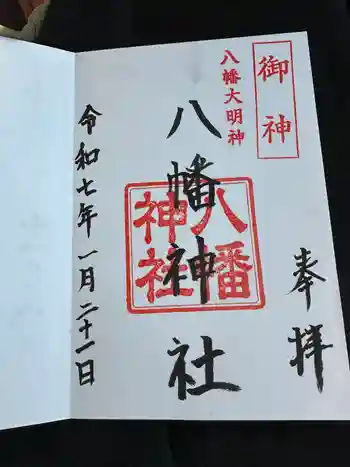 御神
八幡大明神
奉拝
八幡神社
八幡
神社
令和七年一月二十一日